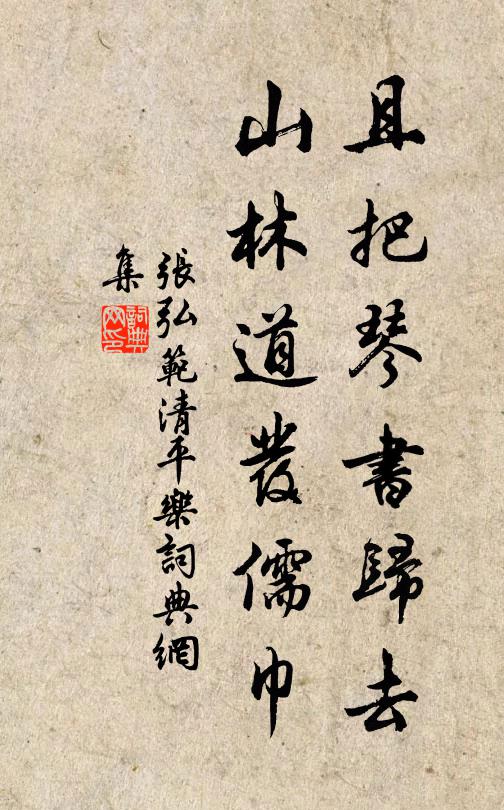 且把琴書歸去
山林道發儒巾
張弘範清平樂詞典網
集
詞典网印